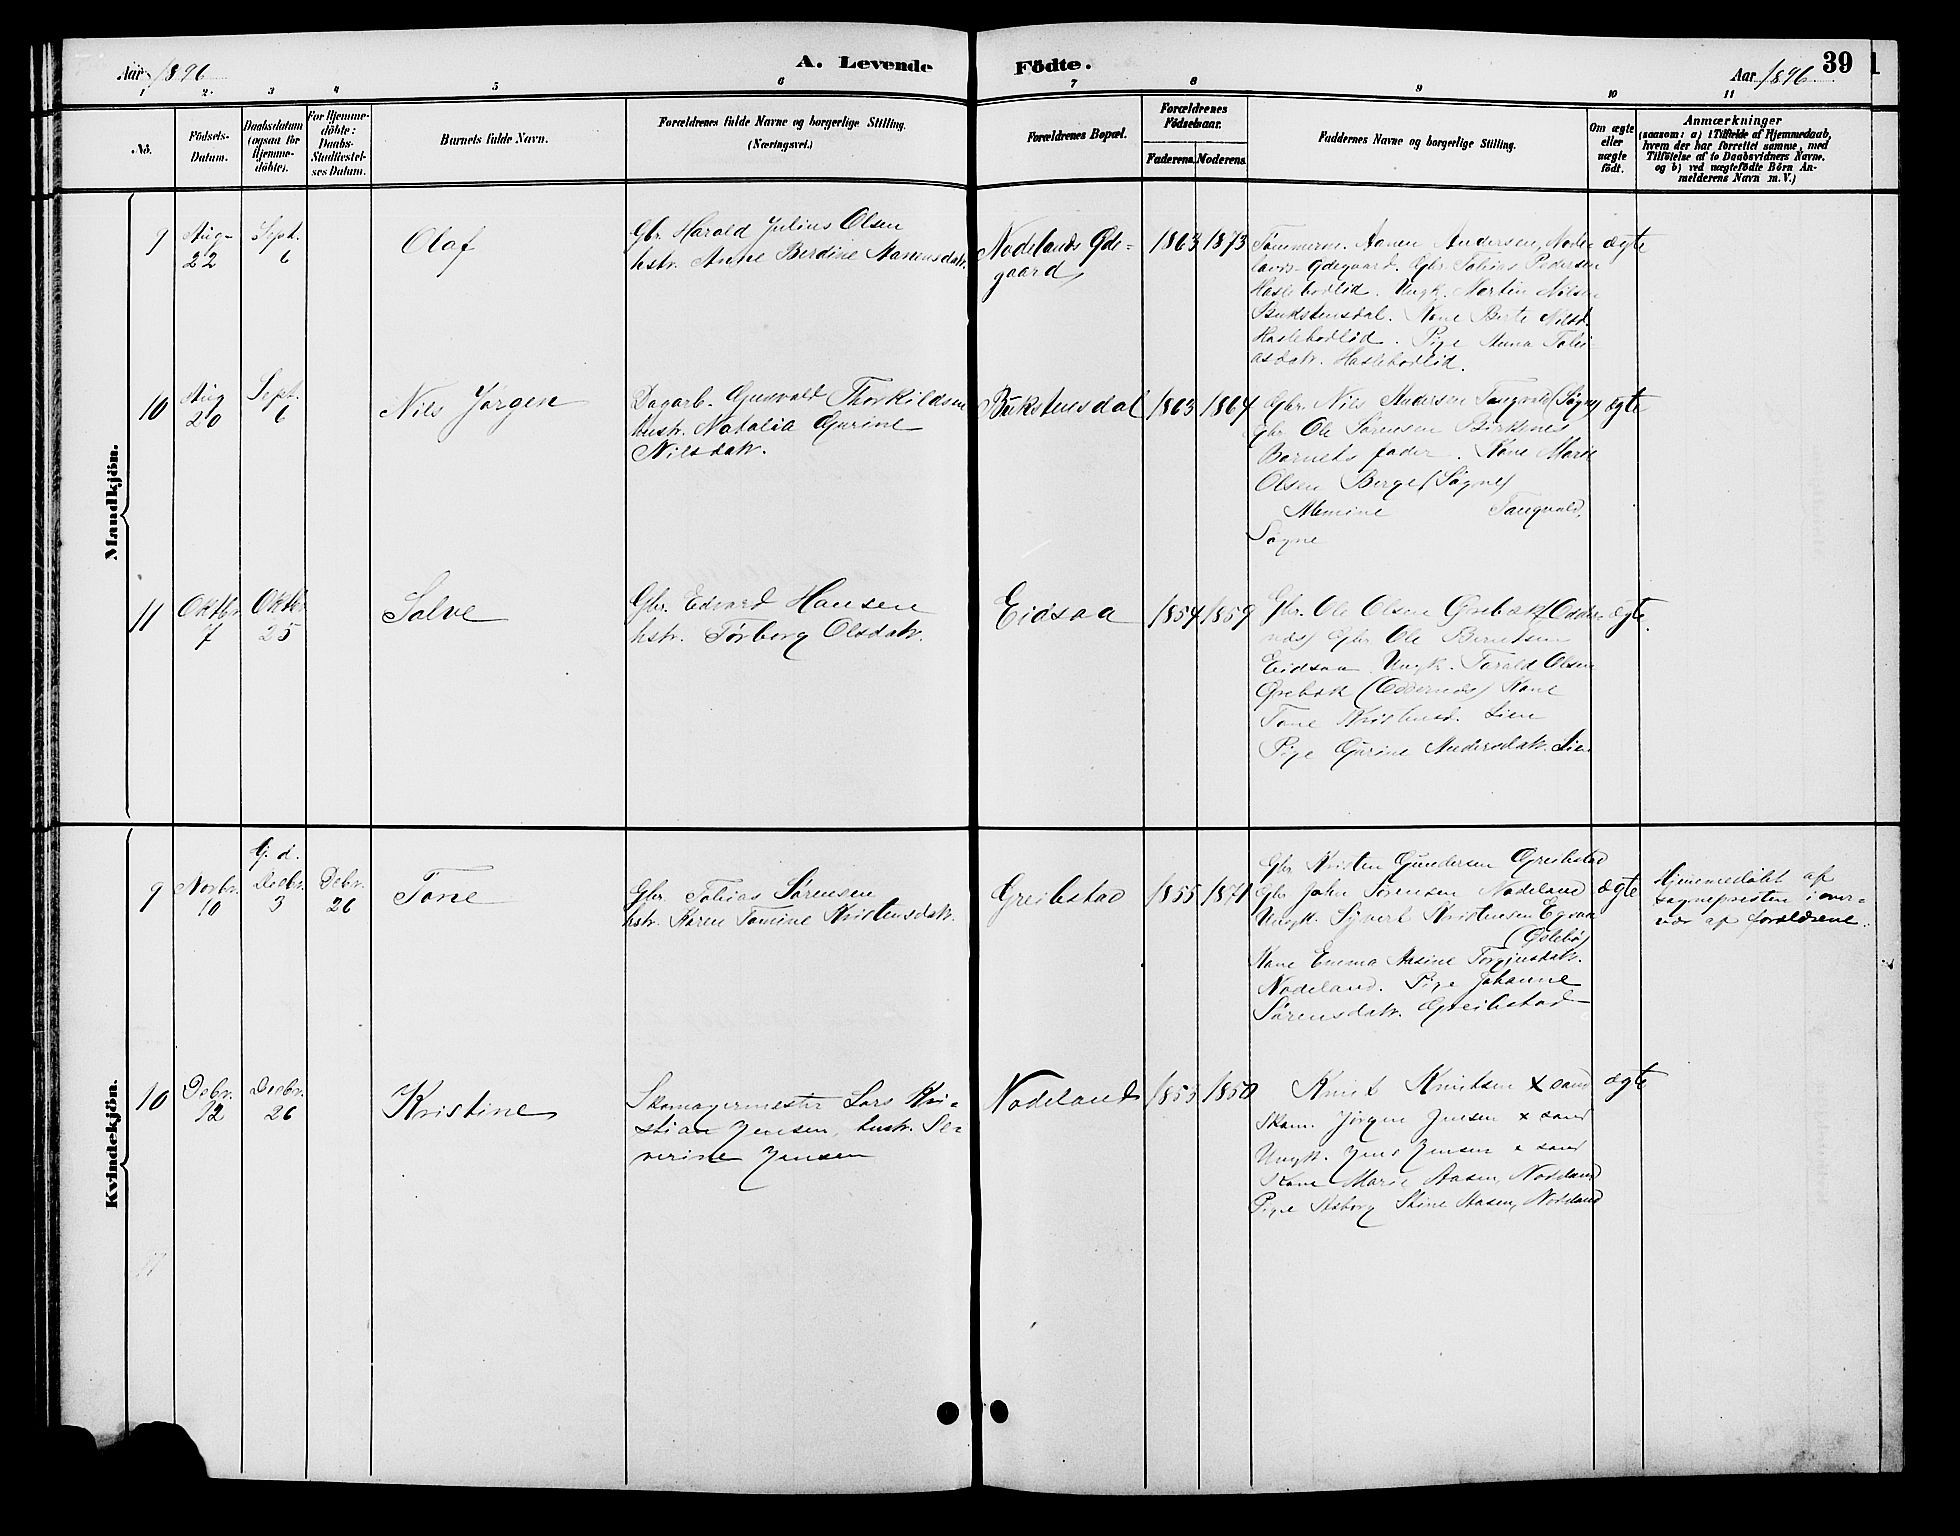 Aar 1896
A. Levende Födte.
Aar 1896
39
1 2. 3 4 5 6 7 8 9 10 11
No.
Födsels-Datum.
Daabsdatum (ogsaa for Hjemme-döbte).
For Hjemme-döbte: Daabs-Stadfæstel-ses Datum.
Barnets fulde Navn.
Forældrenes fulde Navne og borgerlige Stilling. (Næringsvei.)
Forældrenes Bopæl.
Forældrenes Födselsaar.
Faderens. Moderens.
Faddernes Navne og borgerlige Stilling.
Om ægte eller uægte födt.
Anmærkninger
(saasom: a) i Tilfælde af Hjemmedaab, hvem der har forrettet samme, med Tilföielse af to Daabsvidners Navne. og b) ved uægtefödte Börn An-melderens Navn m. V.)
Mandkjön.
9
Aug. 22
Sept. 6
Olaf
Gbr. Harald Julius Olsen
hstr. Anne Berdine Aanensdatr.
Nodelands Øde-
gaard
1863 1873
Tømmerm. Aanen Andersen, Node-
lands Ødegaard. Gbr. Tobias Pedersen
Haslebodlid. Ungk. Martin Nilsen
Bukstensdal. Kone Berte Nilsd.
Haslebodlid. Pige Anna Tobi-
asdatr. Haslebodlid.
ægte
10
Aug 20
Sept. 6
Nils Jørgen
Dagarb. Gunvald Thorkildsen
hustr. Natalia Gurine
Nilsdatr.
Bukstensdal
1863 1864
Gbr. Nils Andersen Tangvald (Søgne)
Gbr Ole Sørensen Birkenes
Barnets fader. Kone Marie
Olsen Berge (Søgne)
Tangvald,
Søgne
ægte
11
Oktbr. 7
Oktbr. 25
Salve
Gbr. Edvard Hansen
hstr. Torborg Olsdatr.
Eidsaa
1854 1859
Gbr. Ole Olsen Grebæk (Odder-
nes) Gbr Ole Berntsen
Eidsaa Ungk. Tarald Olsen
Grebæk (Oddernes) Kone
Tone Kristensd. Lien
Pige Gurine Andersdatr. Lien
ægte.
Kvindekjön.
9
Novbr. 10
Hj. d. Decbr. 3
Debr. 26
Tone
Gbr. Tobias Sørensen
hstr. Karen Tomine Kristensdatr.
Greibstad
1855 1871
Gbr Kristen Gundersen Greibstad
Gbr John Sørensen Nodeland
Ungk. Syvert Kristensen Egsaa
(Øslebø)
Kone Emma Aasine Torginsdatr.
Nodeland. Pige Johanne
Sørensdatr. Greibstad
ægte
Hjemmedøbt af
sognepresten i over-
vær af forældrene.
10
Debr. 12
Decbr. 26
Kristine
Skomagermester Lars Kri-
stian Jensen, hustr. Se-
verine Jensen
Nodeland
1853 1850
Knut Knutsen x sand
Skom. Jørgen Jensen x sand
Ungk. Jens Jensen x sand
Kone Marie Aasen, Nodeland
Pige Asborg Stine Aasen, Nodeland
ægte